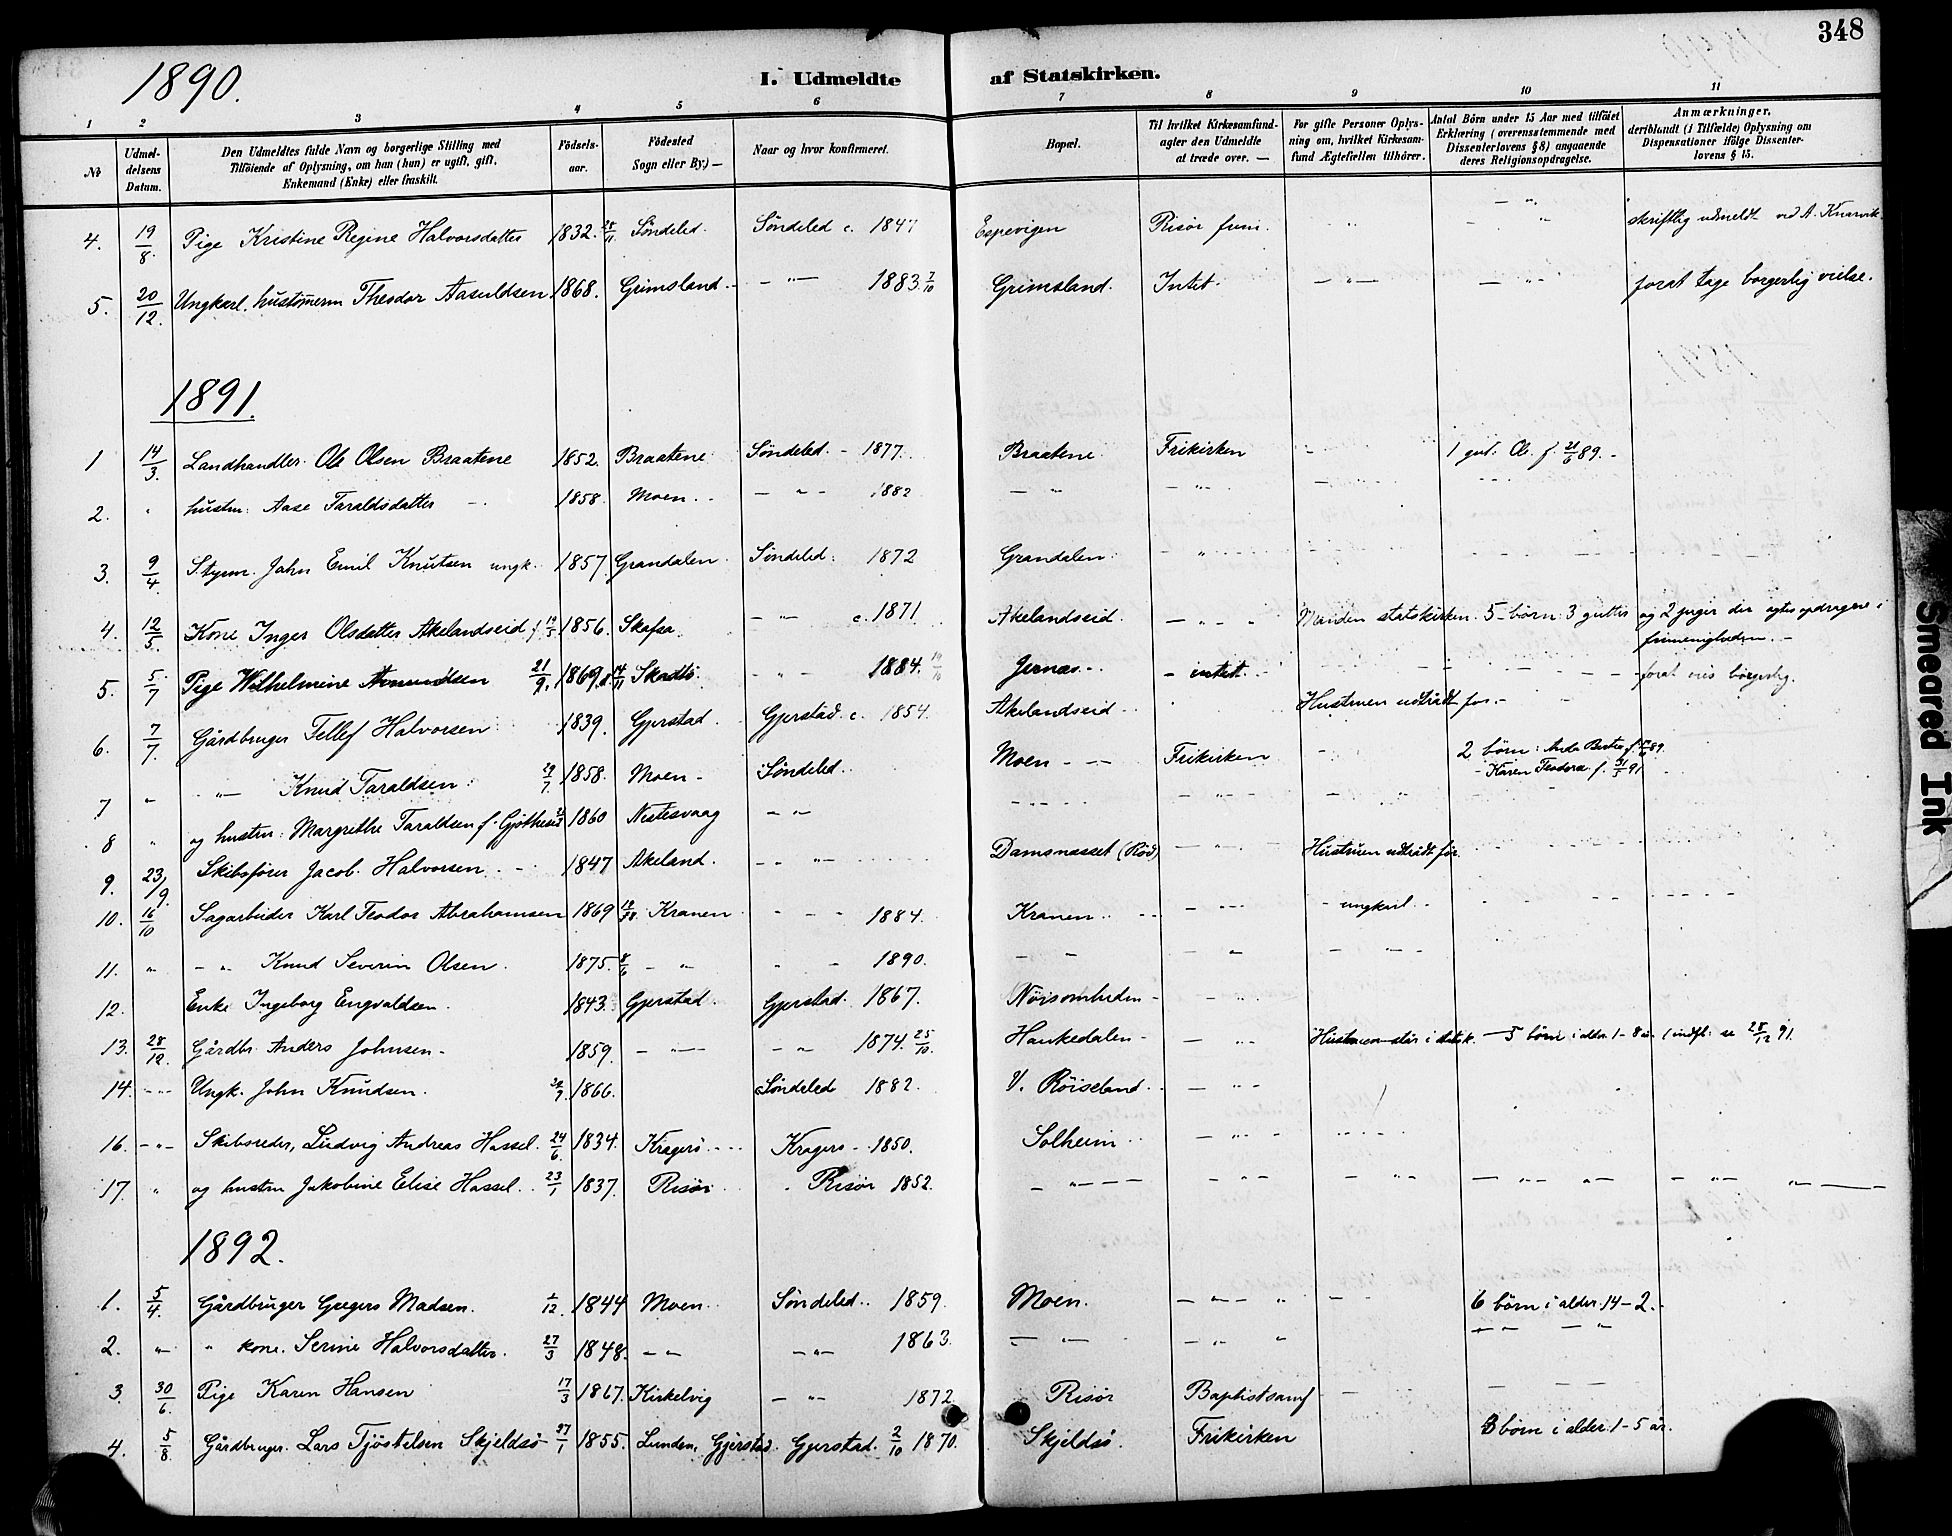 348
1890.
I. Udmeldte af Statskirken.
1 2 3 4 5 6 7 8 9 10 11
No
Udmeldelsens Datum.
Den Udmeldtes fulde Navn og borgerlige Stilling med
Tilføiende af Oplysning, om han (hun) er ugift, gift,
Enkemand (Enke) eller fraskilt.
Fødselsaar.
Fødested
Sogn eller By.) —
Naar og hvor konfirmeret.
Bopæl.
Til hvilket Kirkesamfund-
agter den Udmeldte
at træde over. —
For gifte Personer Oplys-
ning om, hvilket Kirkesam-
fund Ægtefællen tilhører.
Antal Børn under 15 Aar med tilføiet
Erklæring (overensstemmende med
Dissenterlovens § 8) angaaende
deres Religionsopdragelse.
Anmærkninger,
deriblandt (i Tilfælde) Oplysning om
Dispensationer ifølge Dissenter-
lovens § 15.
4. 19/8. Pige Kristine Regine Halvorsdatter 1832. Søndeled. Søndeled c. 1847 Espevigen Risør frim. skriftlig udmeldt ved A. Knarvik
5. 20/12. Ungkarl. Theodor Aasuldsen 1868. Grimsland. - " - 1883 7/10 Grimsland. Intet. - " - - " - forat tage borgerlig vielse.
1891.
1 14/3. Landhandler Ole Olsen Braatene 1852. Braatene Søndeled. - 1877. Braatene Frikirken 1 gut. Ol. f. 21/6 89. -
2. " hustru: Aase Taraldsdatter 1858. Moen. - " - 1882 - "
3. 9/4. Styrm. John Emil Knutsen ungk. 1857. Grandalen. Søndeled. 1872 Grandalen. "
4. 12/5. Kone Inger Olsdatter Akelandseid 1856. Skafsa. - " - c. 1871 Akelandseid. - " - Manden statskirken. 5 børn: 3 gutter og 2 piger der agtes opdragne i
frimenigheden. -
5. 5/7 Pige Wilhelmine 21/9. 1869. 14/11 - " - 1884. Jernæs. - - intet. - forat vies borgerlig.
6. 7/7. Gårdbruger Tellef Halvorsen 1839. Gjerstad. Gjerstad. c. 1854. Akelandseid - Hustruen udtrådt før. -
7 " - " - Knud Taraldsen. 29/7 1858. Moen - Søndeled. Moen - Frikirken 2 børn:
- Karen Teodora f. 91
8 " og hustru: Margrethe Taraldsen f. 1860 Nestesvaag - " -
9. 23/9. Skibsfører Jacob Halvorsen. - 1847 Akeland. - " - Damsnæsset (Rød) - " - Hustruen udtrådt før.
10. 16/10 Sagarbeider Karl Teodor Abrahamsen 1869 Kranen 1884. Kranen - " - - ungkarl. -
11. " - " Knud Severin Olsen. 1875. 8/6 - " - - 1890. - -
12. Enke Ingeborg Engvaldsen. 1843. Gjerstad. Gjerstad. 1867. Nøisomheden -
13. 28/12. Gårdbr. Anders Johnsen - 1859. - " - - " - 1874. 25/10. Haukedalen - - " - Hustruen står i statsk. - 5 børn i alder 1 - 8 år. 28/12 91.
14. - " - Ungk. John Knudsen. 1866. Søndeled 1882. V. Røiseland. - " -
16. - " - Skibsreder, Ludvig Andreas Hassel. 24/6. 1834. Kragerø Kragerø - 1850. Solheim - " -
17. " og hustru Jakobine Elise Hassel. 23/1 1837. Risør Risør 1852. - " -
1892.
1. 5/4. Gårdbruger Gregers Madsen. 1/12. 1844 Moen. Søndeled. 1859. Moen. - " - " 6 børn i alder 14 - 2. -
2. " " kone. Serine Halvorsdatter. 27/3 1848. - " - - " - 1863. - " - - " - "
3. 30/6 Pige Karen Hansen 17/3 1867. Kirkelvig - " - 1872 Risør Baptistsamf
4. 5/8. Gårdbruger. Lars Tjøstelsen Skjeldsø 27/1 1855. Lunden, Gjerstad. Gjerstad. 2/10 1870. Skjeldsø. Frikirken 3 børn i alder 1 - 5 år.
Smeared Ink